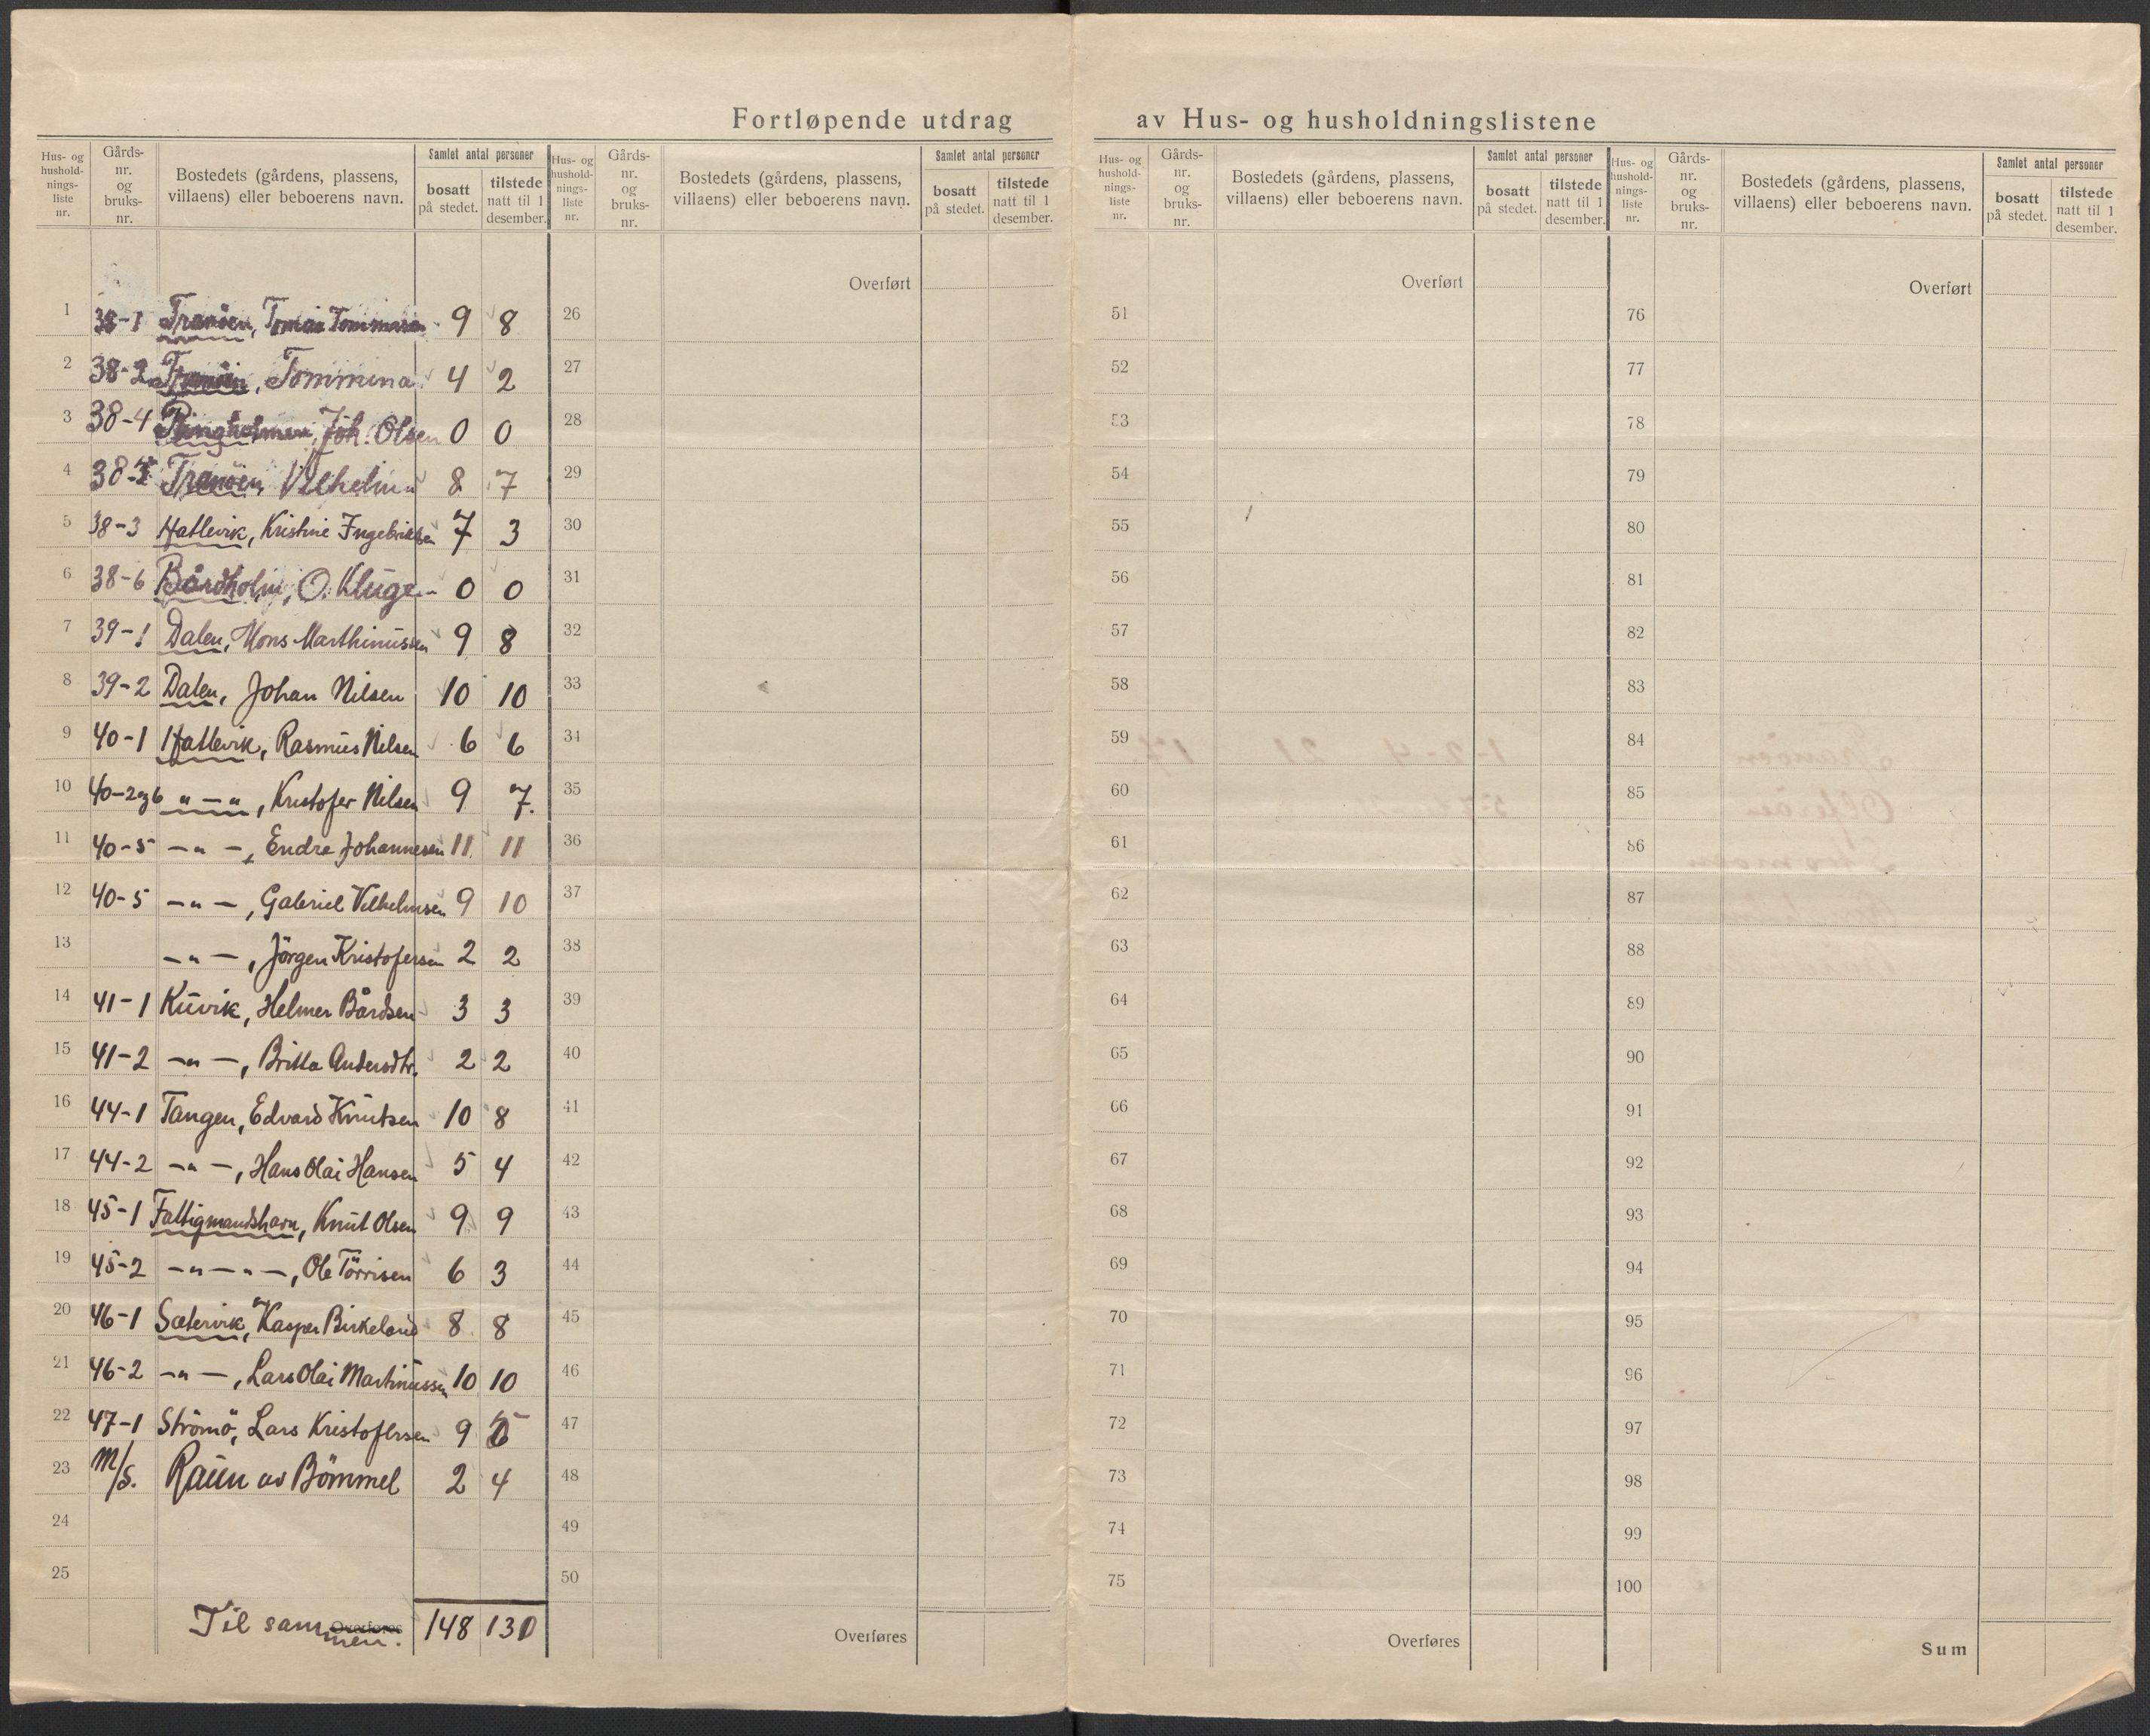 Fortløpende utdrag av Hus- og husholdningslistene
Hus- og hushold- nings- liste nr.
Gårds- nr. og bruks- nr.
Bostedets (gårdens, plassens, villaens) eller beboerens navn.
Samlet antal personer
bosatt på stedet.
tilstede natt til 1 desember.
Hus- og hushold- nings- liste nr.
Gårds- nr. og bruks- nr.
Bostedets (gårdens, plassens, villaens) eller beboerens navn.
Samlet antal personer
bosatt på stedet.
tilstede natt til 1 desember.
Hus- og hushold- nings- liste nr.
Gårds- nr. og bruks- nr.
Bostedets (gårdens, plassens, villaens) eller beboerens navn.
Samlet antal personer
bosatt på stedet.
tilstede natt til 1 desember.
Hus- og hushold- nings- liste nr.
Gårds- nr. og bruks- nr.
Bostedets (gårdens, plassens, villaens) eller beboerens navn.
Samlet antal personer
bosatt på stedet.
tilstede natt til 1 desember.
1 38-1 Tranöen, Tomas Tommasen 9 8
2 38-2 Tranöen, Tommina 4 2
3 38-4 Ringholmen, Joh. Olsen 0 0
4 Tranöen, Vilhelm 8 7
5 38-3 Hatlevik, Kristine Ingebriktsen 7 3
6 38-6 Bårdholm, O. Kluge 0 0
7 39-1 Dalen, Mons Marthinussen 9 8
8 39-2 Dalen, Johan Nilsen 10 10
9 40-1 Hatlevik, Rasmus Nilsen 6 6
10 40-2og6 „ — „, Kristofer Nilsen 9 7.
11 40-5 — „ —, Endre Johannesen 11 11
12 40-5 — „ —, Gabriel Vilhelmsen 9 10
13 — „ —, Jörgen Kristofersen 2 2
14 41-1 Kuvik, Helmer Bårdsen 3 3
15 41-2 — „ —, Britta Andersdtr. 2 2
16 44-1 Tangen, Edvard Knutsen 10 8
17 44-2 — „ —, Hans Olai Hansen 5 4
18 45-1 Fattigmandshavn, Knut Olsen 9 9
19 45-2 — „ — „ —, Ole Törrisen 6 3
20 46-1 Sætervik, Kasper Birkeland 8 8
21 46-2 — „ —, Lars Olai Martinussen 10 10
22 47-1 Strömö, Lars Kristofersen 9
23 M/S. Raun av Bömmel 2 4
24
25
Til sammen. Overføres 148 130
Overført
26
27
28
29
30
31
32
33
34
35
36
37
38
39
40
41
42
43
44
45
46
47
48
49
50
Overføres
Overført
51
52
53
54
55
56
57
58
59
60
61
62
63
64
65
66
67
68
69
70
71
72
73
74
75
Overføres
Overført
76
77
78
79
80
81
82
83
84
85
86
87
88
89
90
91
92
93
94
95
96
97
98
99
100
Sum